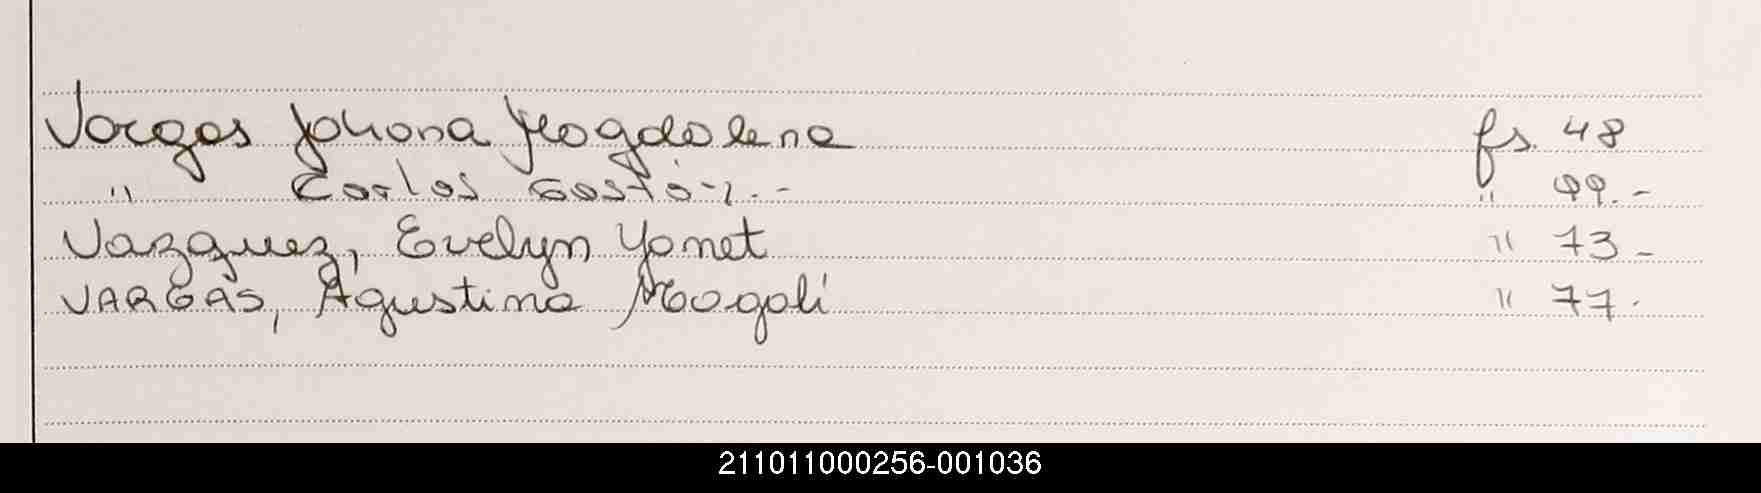 Vargas Johana Magdalena fs. 48
" Carlos Gastón.- " 49.-
Vazquez, Evelyn Yanet " 73-
VARGAS, Agustina Magali " 77.
211011000256-001036